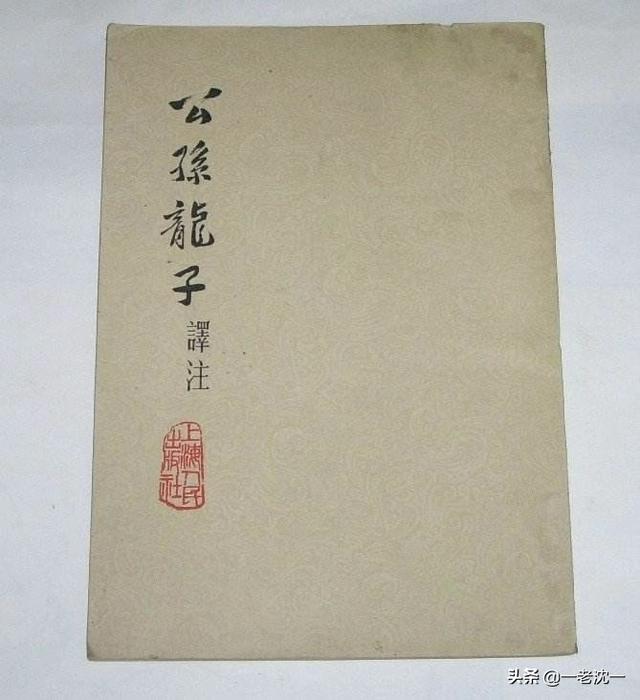 公孫龍子
譯注
上海人民
出版社
头条 @一老沈一